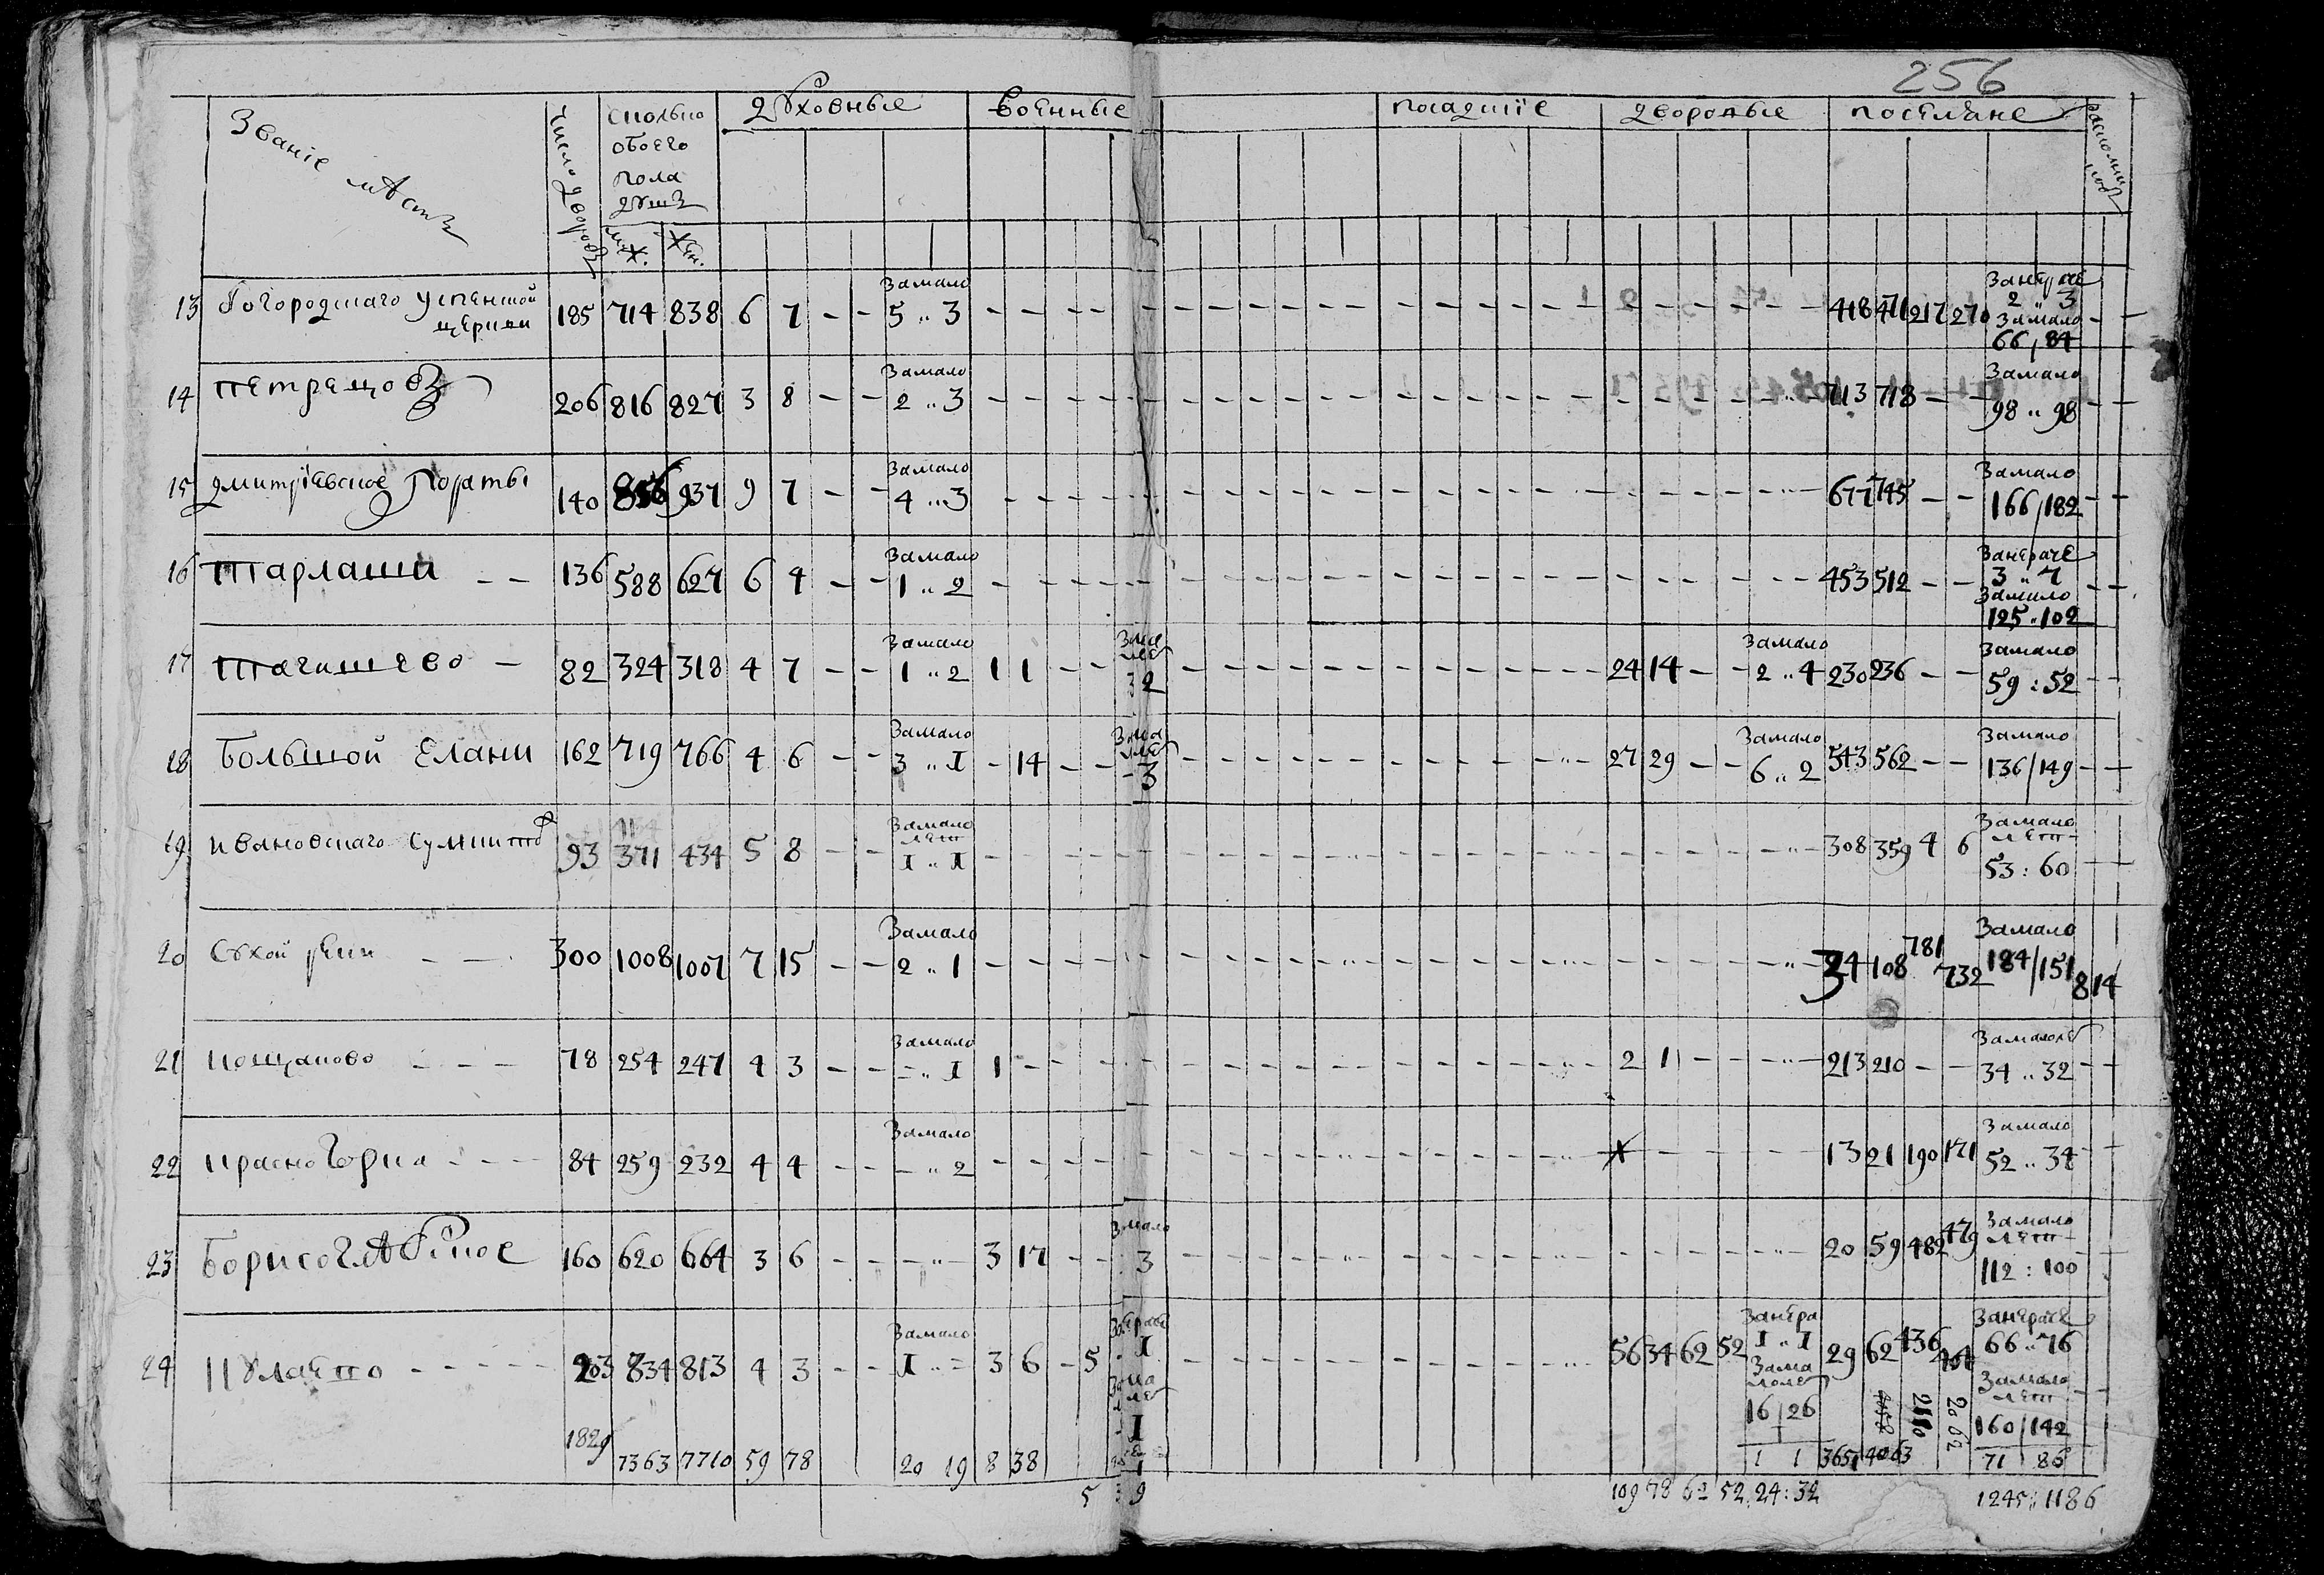 256
Званіе мѣстъ Число дворовъ сколько обоего пола душъ духовныѣ военныѣ посадціѣ дворовыѣ поселянѣ
муж. жен.
13 Богородцкаго Успенской церкви 185 714 838 6 7 - - замало 5 „ 3 - - - - 418 471 217 270 2 „ 3 замало 66 / 84 - -
14 Петрецовъ 206 816 827 3 8 - - замало 2 „ 3 - - - - 713 718 - - замало 98 „ 98 - -
15 Дмитріевскоѣ 140 937 9 7 - - замало 4 „ 3 - - - - 677 745 - - замало 166 / 182 - -
16 Тарлаши - - 136 588 627 6 4 - - замало 1 „ 2 - - - - 453 512 - - занераче 3 „ 7 замало 125 „ 102 - -
17 Тагишево - 82 324 318 4 7 - - замало 1 „ 2 1 1 - - 32 24 14 - - замало 2 „ 4 230 236 - - замало 59 : 52 - -
18 Большой Елани 162 719 766 4 6 - - замало 3 „ I - 14 - - - 3 27 29 - - замало 6 „ 2 543 562 - - замало 136 / 149 - -
19 Ивановскаго 93 371 434 5 8 - - замало лет I „ I - - - - 308 359 4 6 замало лет 53 : 60 - -
20 Сухой реки - - 300 1008 1007 7 15 - - замало 2 „ 1 - - - - 34 108 781 732 замало 184 / 151 8 14
21 Кощаково - - - 78 254 247 4 3 - - замало - „ I 1 - - - 2 1 - - 213 210 - - замалолѣ 34 „ 32 - -
22 Красно Горка - - - 84 259 232 4 4 - - замало - „ 2 - - - - 13 21 190 171 замало 52 „ 34 - -
23 Борисоглѣбское 160 620 664 3 6 - - - „ - 3 17 - - замало 3 20 59 482 479 замало лет 112 : 100
24 Кулаево - - - - - 203 834 813 4 3 - - замало I „ - 3 6 - 5 I 56 34 62 52 занера I „ I зама лолѣ 16 / 26 29 62 436 занераче 66 „ 76 замало лет 160 / 142 - -
1829 7363 7710 59 78 20 19 8 38 1 1 3651 4063 2110 2002 71 86
5 9 109 78 62 52 24 : 32 1245 : 1186